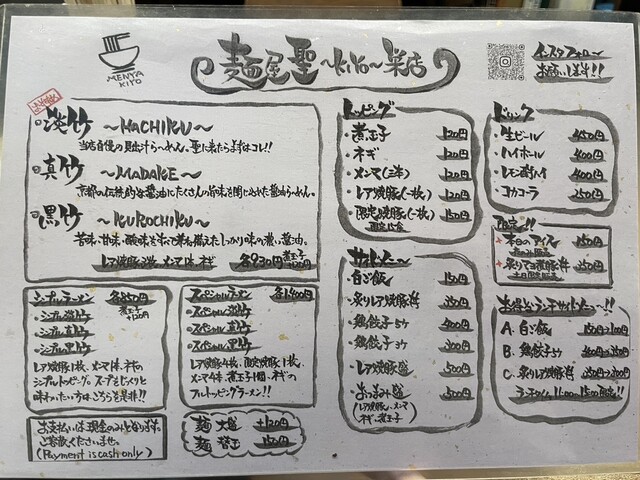 MENYA KIYO
麺屋聖 〜KIYO〜 巣店
インスタフォロー
お願いします!!
淡竹 〜HACHIKU〜
当店自慢の貝出汁らーめん。聖に来たらまずはコレ!!
真竹 〜MADAKE〜
京都の伝統的な醤油にたくさんの旨味を閉じ込めた醤油らーめん。
黒竹 〜KUROCHIKU〜
苦味・甘味・酸味を
味の濃い醤油。
各930円 煮玉子+120円
シンプルラーメン 各850円
煮玉子+120円
・シンプル淡竹
・シンプル真竹
・シンプル黒竹
レア焼豚1枚、メンマ1本、ネギの
シンプルトッピング。スープをじっくりと
味わいたい方はこちらを是非!!
お支払いは現金のみとなります。
ご容赦くださいませ。
(Payment is cash only)
スペシャルラーメン 各1400円
・スペシャル淡竹
・スペシャル真竹
・スペシャル黒竹
レア焼豚4枚、限定焼豚1枚、
メンマ4本、煮玉子1個、ネギの
フルトッピングラーメン!!
麺 大盛 +120円
麺 替玉 150円
トッピング
・煮玉子 120円
・ネギ 120円
・メンマ(三本) 120円
・レア焼豚(一枚) 120円
・限定焼豚(一枚) 150円
サイドメニュー
・白ご飯 150円
・炙りレア焼豚丼 350円
・鶏餃子5ケ 400円
・鶏餃子3ケ 300円
・レア焼豚盛 500円
・おつまみ盛 500円
(レア焼豚、メンマ
ネギ、煮玉子)
ドリンク
・生ビール 450円
・ハイボール 400円
・レモン酎ハイ 400円
・コカコーラ 250円
限定!!
・本日のアイス 150円
お得なランチサイドメニュー!!
A. 白ご飯 150円→100円
B. 鶏餃子
C. 炙りレア焼豚丼
ランチタイム 11:00〜15:00限定!!